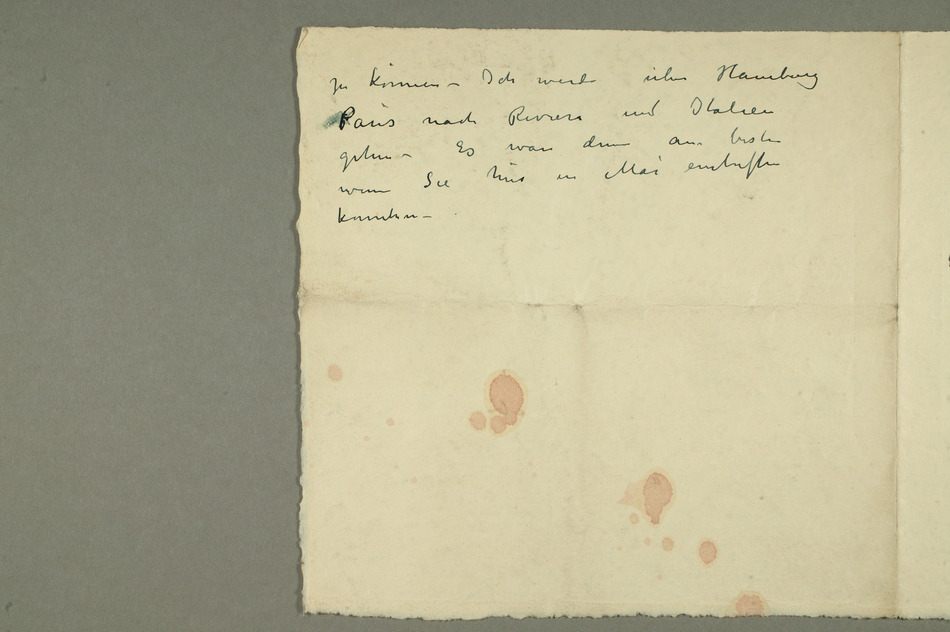 zu können – Ich werde über Hamburg
Paris nach Riviera und Italien
gehen – Es war denn am besten
wenn Sie hier in Mai eintreffen
konnten –